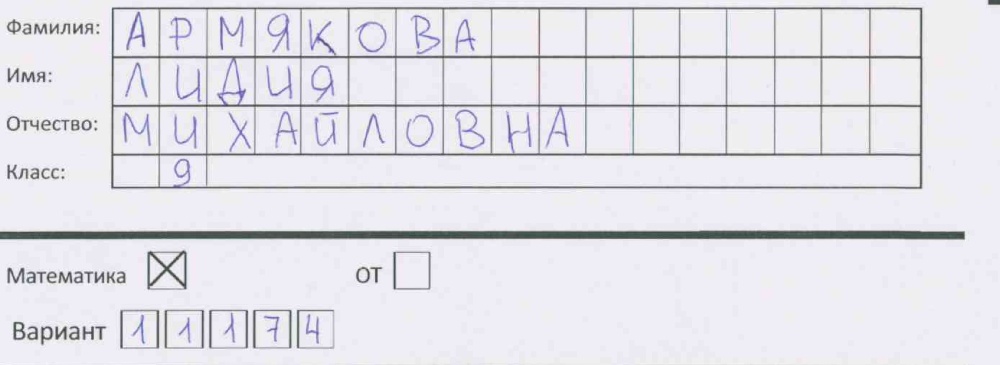 Фамилия: АРМЯКОВА
Имя: ЛИДИЯ
Отчество: МИХАЙЛОВНА
Класс: 9
Математика ☒ ОТ ☐
Вариант 11174